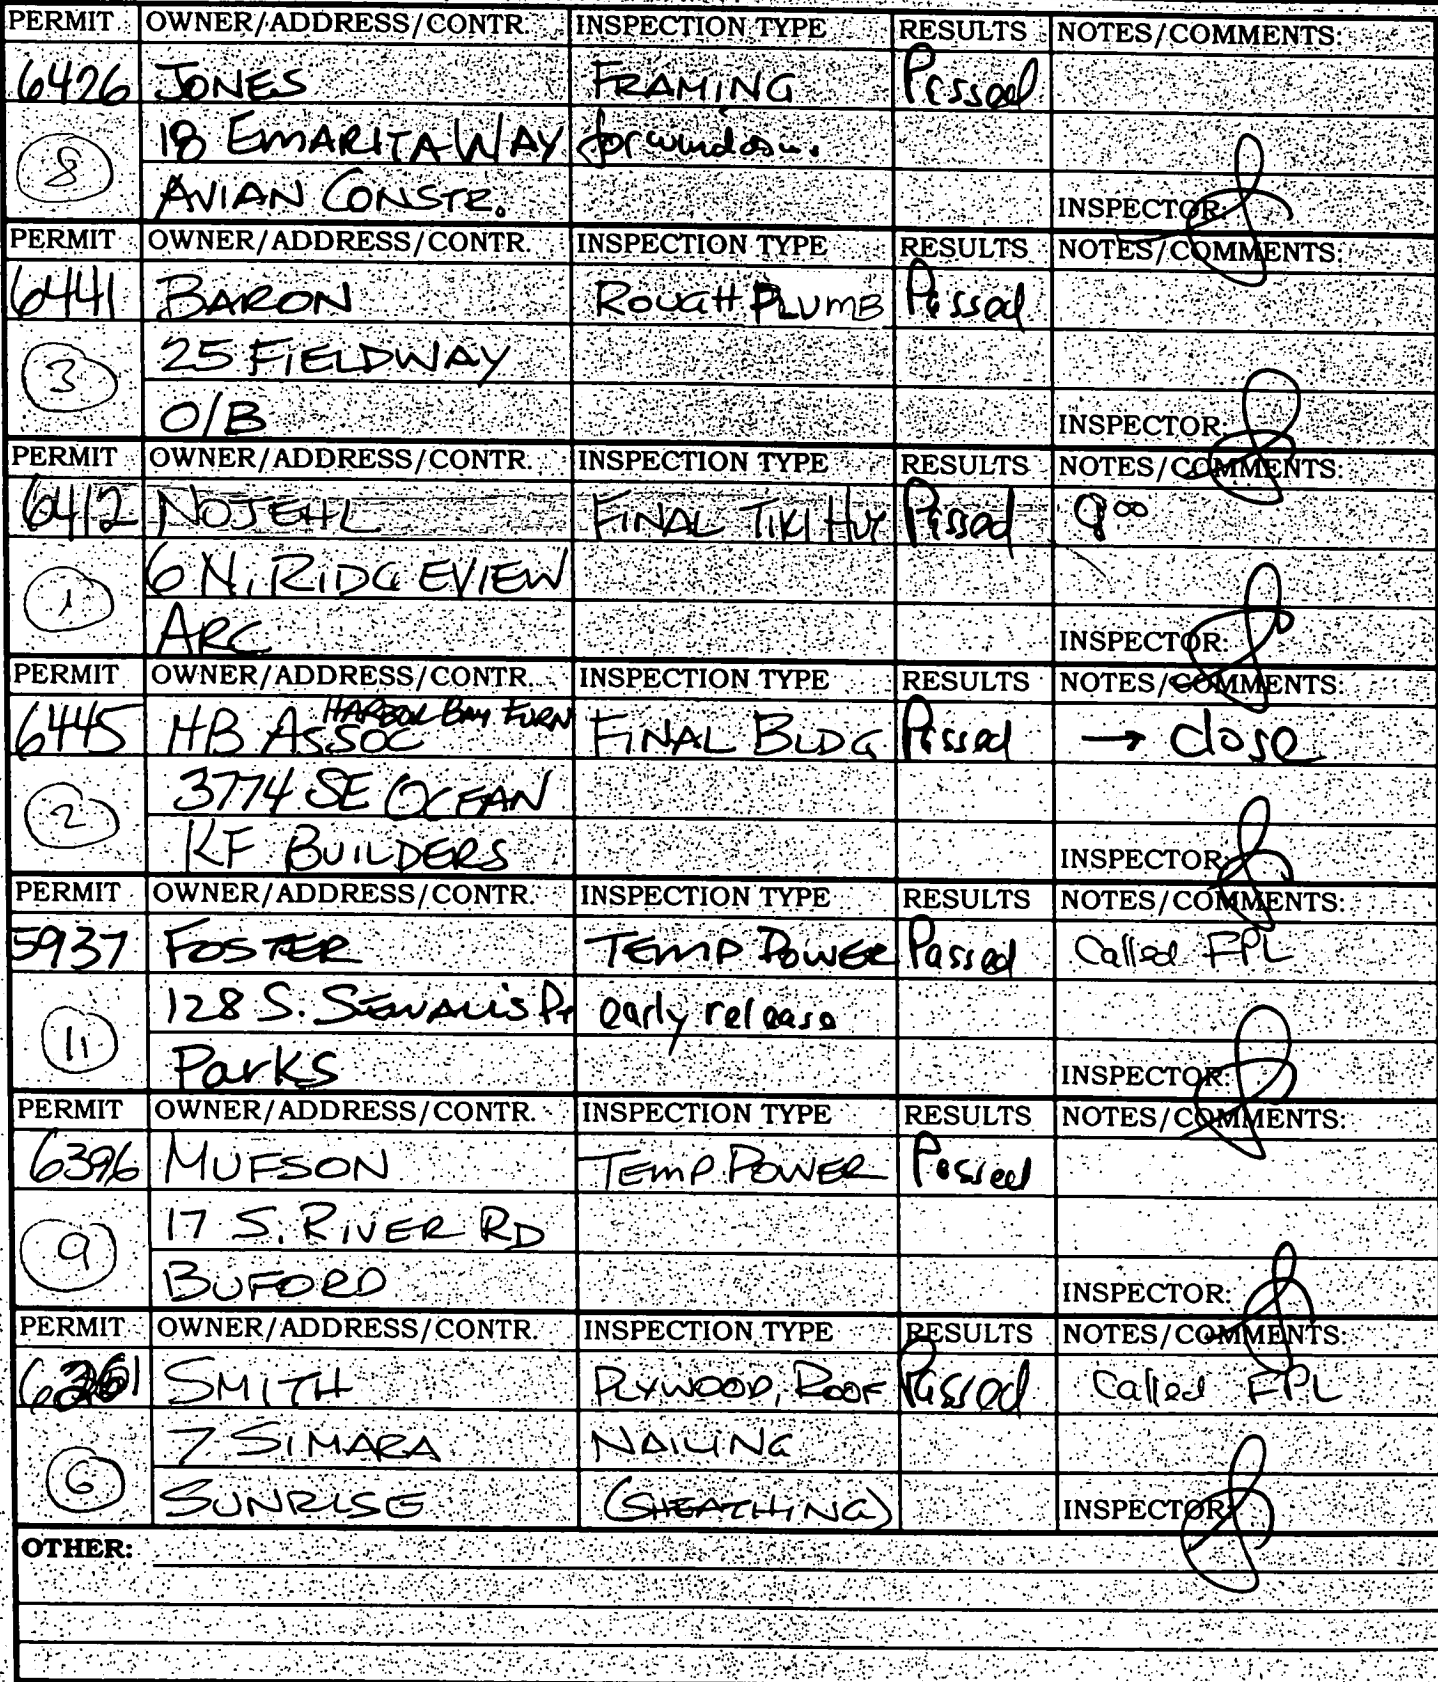 PERMIT OWNER/ADDRESS/CONTR. INSPECTION TYPE RESULTS NOTES/COMMENTS:
6426 JONES FRAMING Passed
8 18 EMARITA WAY for window.
AVIAN CONSTR. INSPECTOR:
PERMIT OWNER/ADDRESS/CONTR. INSPECTION TYPE RESULTS NOTES/COMMENTS:
6441 BARON ROUGH PLUMB Passed
3 25 FIELDWAY
O/B INSPECTOR:
PERMIT OWNER/ADDRESS/CONTR. INSPECTION TYPE RESULTS NOTES/COMMENTS:
6412 NOJEHL FINAL TIKI HUT Passed
1 6 N. RIDGEVIEW
ARC INSPECTOR:
PERMIT OWNER/ADDRESS/CONTR. INSPECTION TYPE RESULTS NOTES/COMMENTS:
6445 HB ASSOC HARBOR BAY FURN FINAL BLDG Passed → close
2 3774 SE OCEAN
KF BUILDERS INSPECTOR:
PERMIT OWNER/ADDRESS/CONTR. INSPECTION TYPE RESULTS NOTES/COMMENTS:
5937 FOSTER TEMP POWER Passed Called FPL
11 128 S. SEWALL'S Pt early release
Parks INSPECTOR:
PERMIT OWNER/ADDRESS/CONTR. INSPECTION TYPE RESULTS NOTES/COMMENTS:
6396 MUFSON TEMP. POWER Passed
9 17 S. RIVER RD
BUFORD INSPECTOR:
PERMIT OWNER/ADDRESS/CONTR. INSPECTION TYPE RESULTS NOTES/COMMENTS:
SMITH PLYWOOD, ROOF Passed Called FPL
6 7 SIMARA NAILING
SUNRISE (SHEATHING) INSPECTOR:
OTHER: